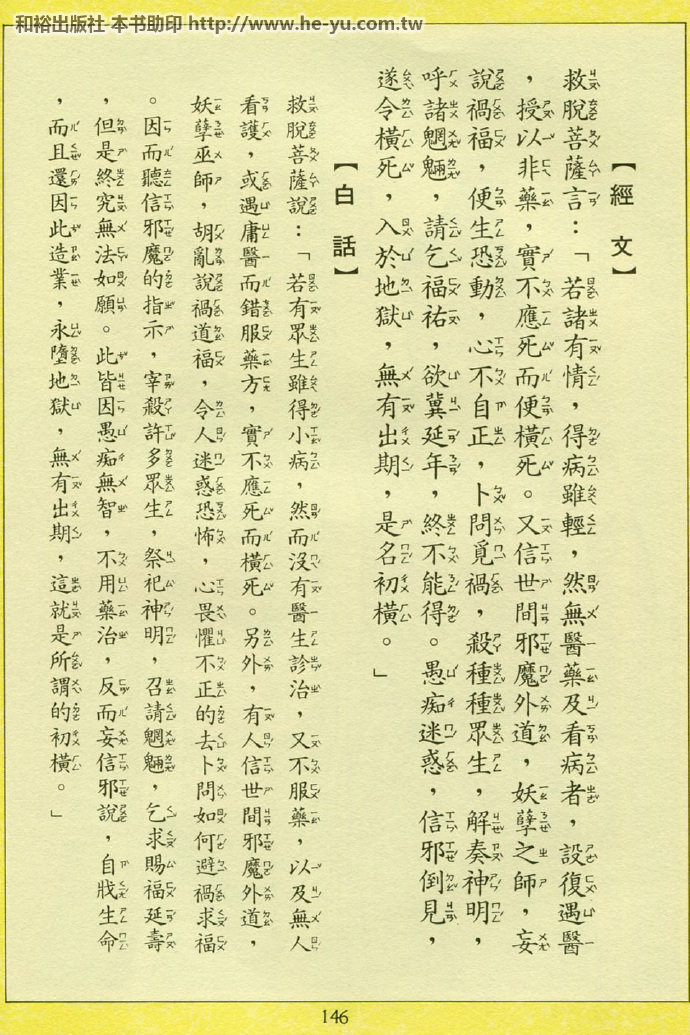 和裕出版社 本书助印 http://www.he-yu.com.tw
【經文】
救脫菩薩言：「若諸有情，得病雖輕，然無醫藥及看病者，設復遇醫
，授以非藥，實不應死而便橫死。又信世間邪魔外道，妖孽之師，妄
說禍福，便生恐動，心不自正，卜問覓禍，殺種種眾生，解奏神明，
呼諸魍魎，請乞福祐，欲冀延年，終不能得。愚痴迷惑，信邪倒見，
遂令橫死，入於地獄，無有出期，是名初橫。」
【白話】
救脫菩薩說：「若有眾生雖得小病，然而沒有醫生診治，又不服藥，以及無人
看護，或遇庸醫而錯服藥方，實不應死而橫死。另外，有人信世間邪魔外道，
妖孽巫師，胡亂說禍道福，令人迷惑恐怖，心畏懼不正的去卜問如何避禍求福
。因而聽信邪魔的指示，宰殺許多眾生，祭祀神明，召請魍魎，乞求賜福延壽
，但是終究無法如願。此皆因愚痴無智，不用藥治，反而妄信邪說，自戕生命
，而且還因此造業，永墮地獄，無有出期，這就是所謂的初橫。」
146